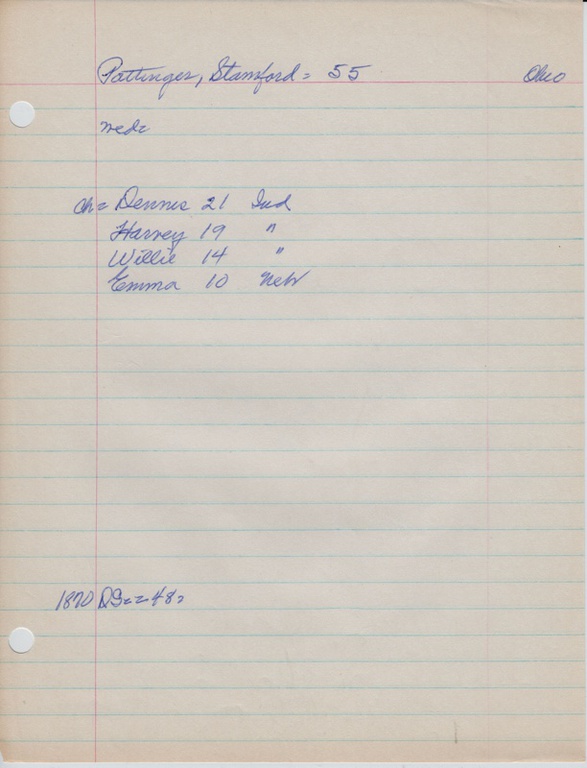 Pattinger, Stamford = 55 Ohio
med=
ch= Dennis 21 Ind
Harvey 19 "
Willie 14 "
Emma 10 Nebr
1870 DG= = 48=